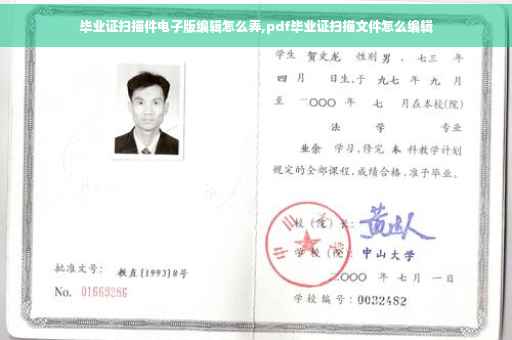 毕业证扫描件电子版编辑怎么弄,pdf毕业证扫描文件怎么编辑
学生 贺文龙 性别 男 、七三 年
四 月 日生,于 九七 年 九 月
至 二〇〇〇 年 七 月在本校(院)
法 学 专业
业余 学习,修完 本 科教学计划
规定的全部课程,成绩合格,准予毕业。
校(院)长:
学校(院): 中山大学
二〇〇〇 年 七 月 一 日
学校编号:0032482
批准文号: 教直[1993]8号
No. 01669286